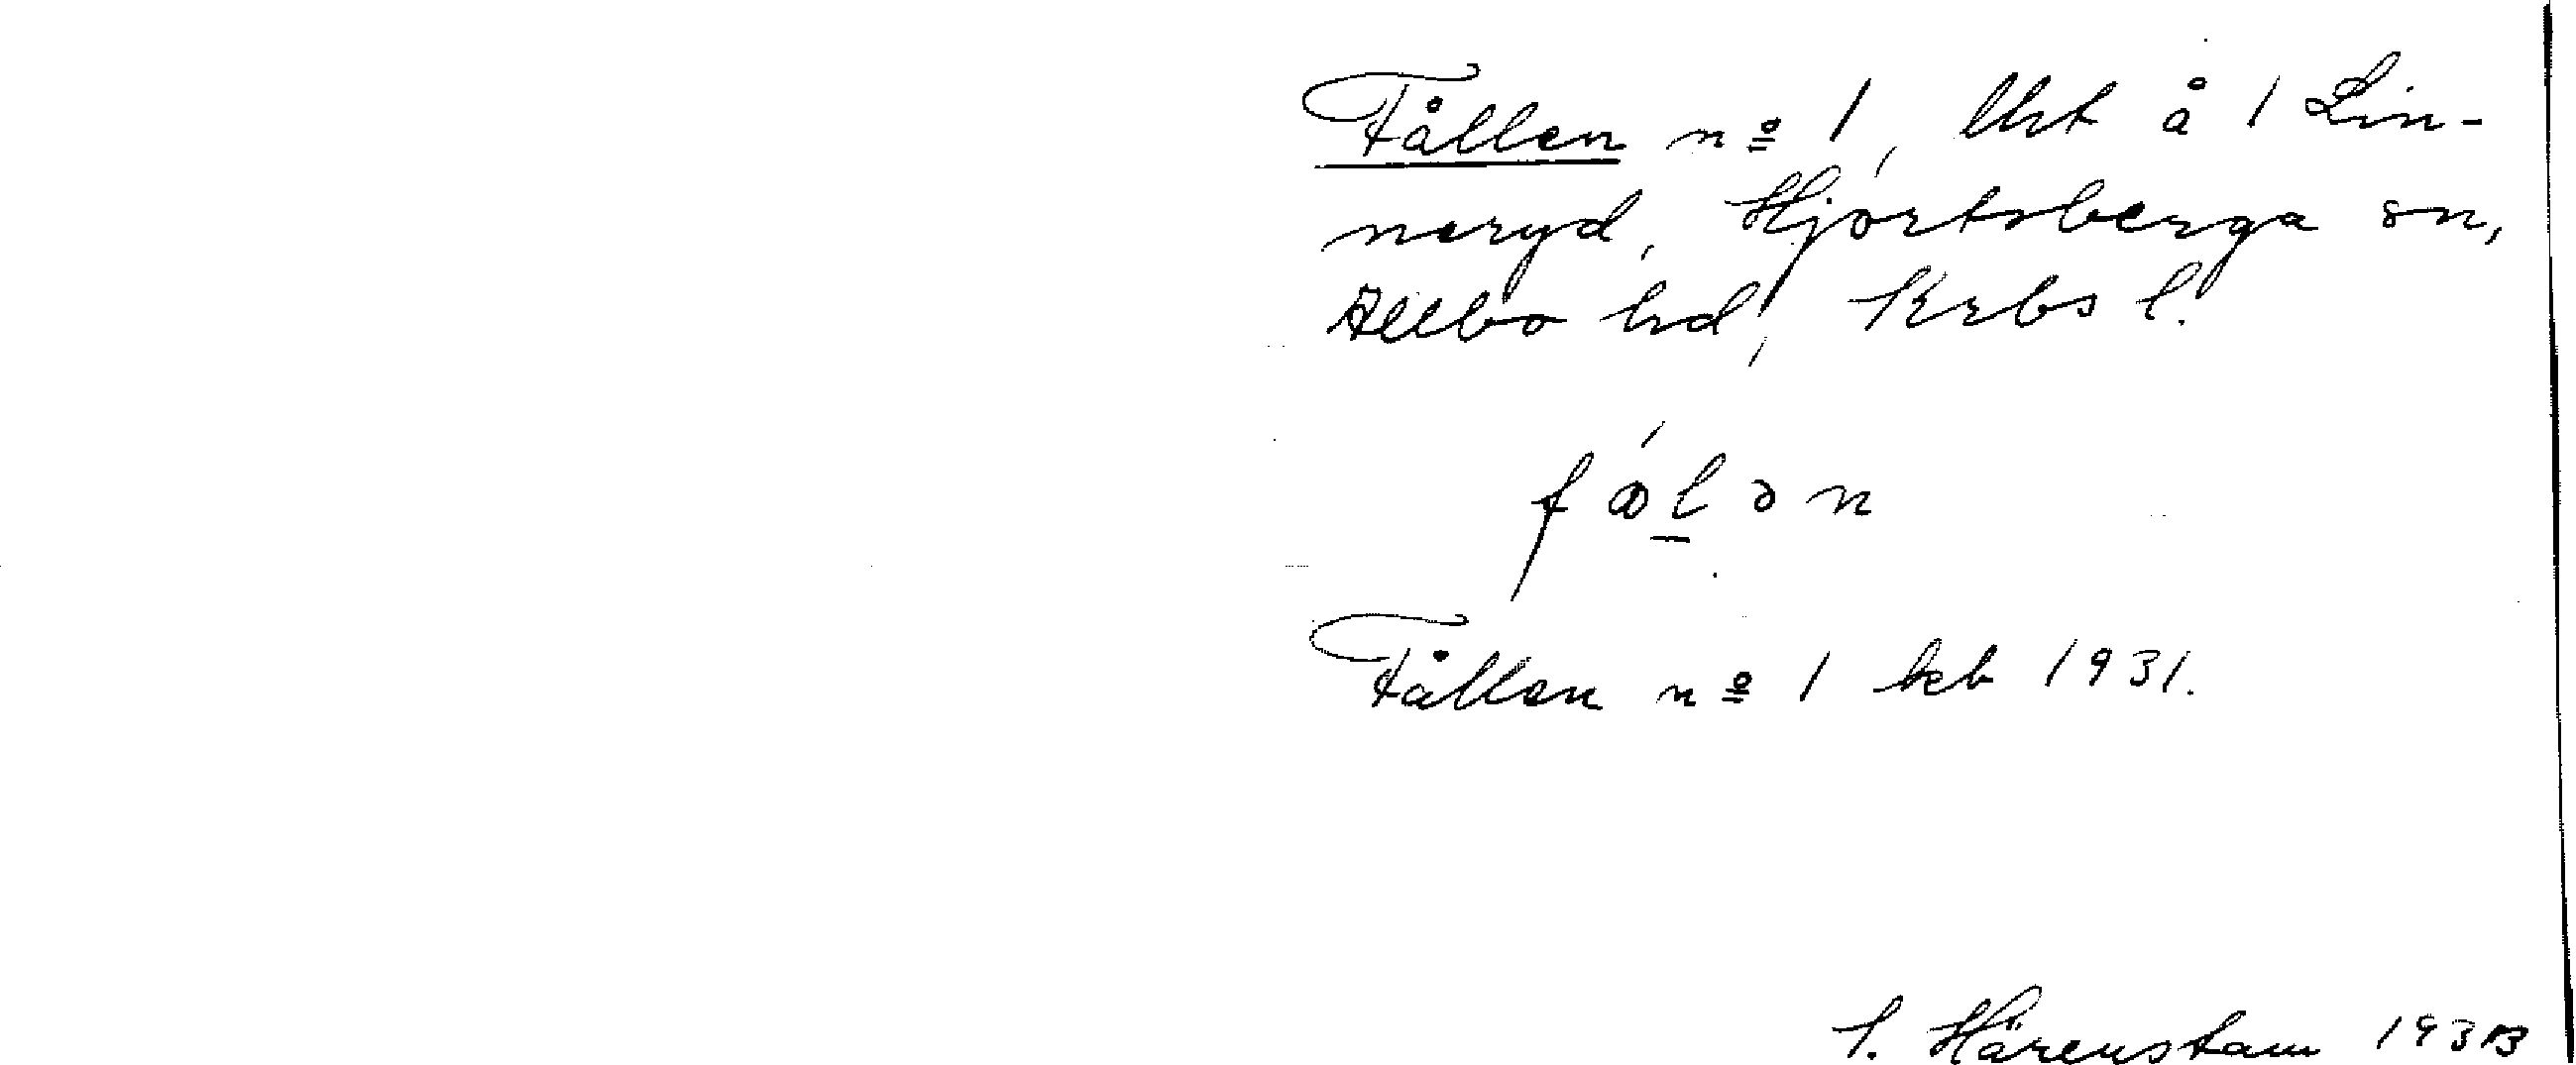 Fållen nº 1, lht å 1 Lin-
neryd, Hjortsberga sn,
Allbo hd, Krbs l.
fålən
Fållen nº 1 kb 1931.
S. Härenstam 193